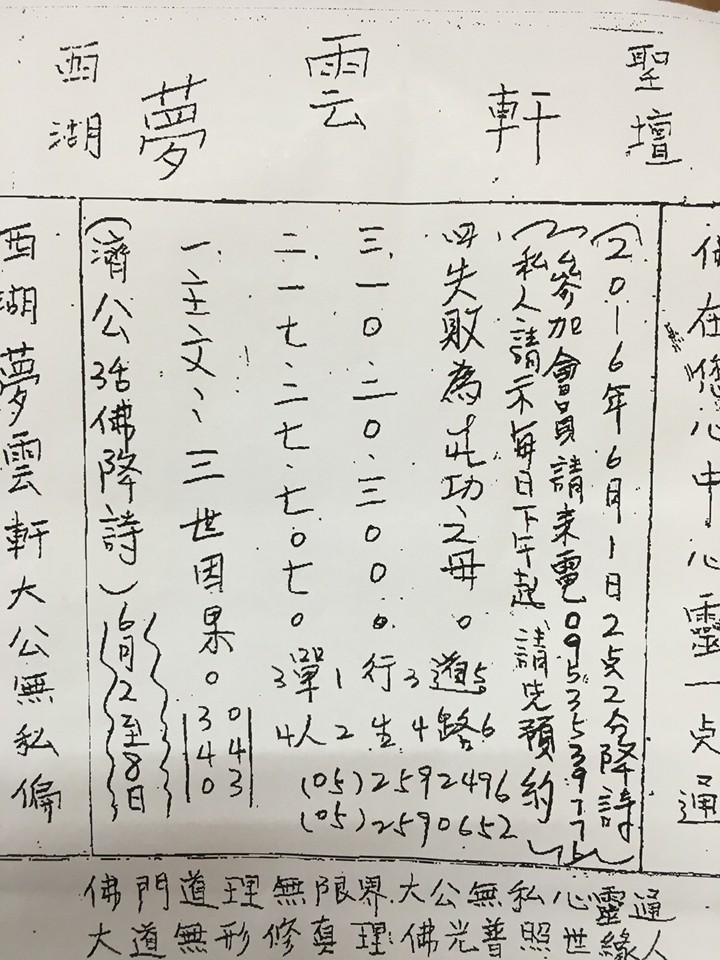 西湖 夢 雲 軒 聖壇
西湖夢雲軒大公無私偏
(濟公活佛降詩) 6月2至8日
一.主文:三世因果。
340
043
二.一七.二七.七0七0
34
單人
12
三.一0.二0.三00。
行生
34
四.失敗為成功之母。
道路
56
(05)2592496
(05)2590652
(私人請示每日下午起請先預約)
(參加會員請來電0953539771)
(2016年6月1日2点2分降詩)
佛在您心中心靈一点通
佛門道理無限界.大公無私心靈通
大道無形修真理.佛光普照世緣人